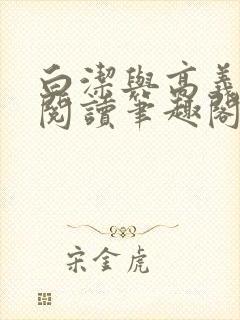 白潔與高義
閱讀筆趣閣
宋金虎